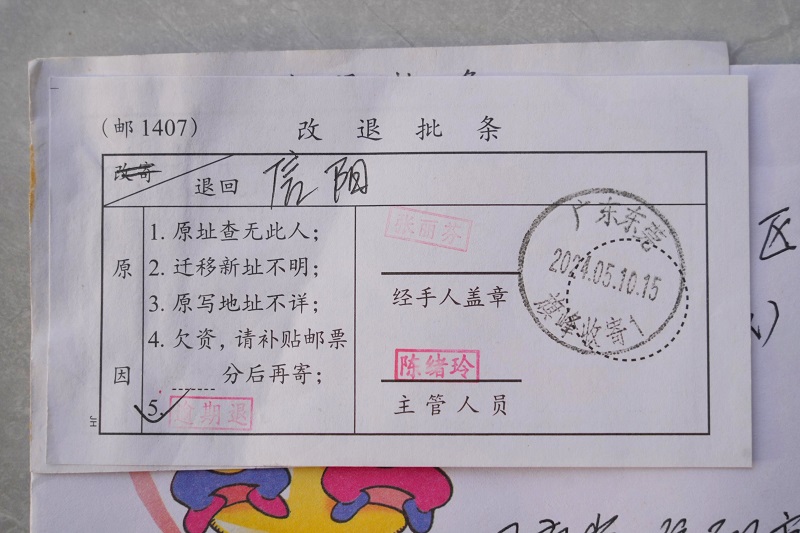 (邮 1407)
改 退 批 条
改寄
退回 信阳
原
因
1. 原址查无此人;
2. 迁移新址不明;
3. 原写地址不详;
4. 欠资,请补贴邮票
分后再寄;
5. 逾期退
张西芬
经手人盖章
陈绪玲
主管人员
广东东莞
2024.05.10.15
旗峰收寄1
JH
区